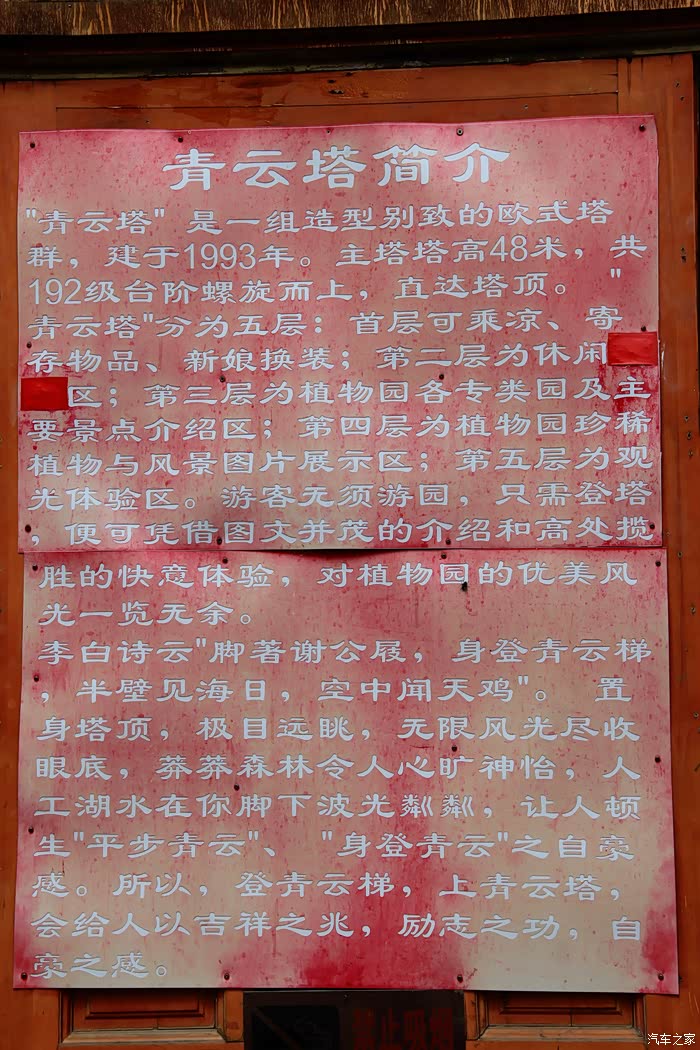 青云塔简介
"青云塔" 是一组造型别致的欧式塔
群，建于1993年。主塔塔高48米，共
192级台阶螺旋而上，直达塔顶。"
青云塔"分为五层：首层可乘凉、寄
存物品、新娘换装；第二层为休闲
区；第三层为植物园各专类园及主
要景点介绍区；第四层为植物园珍稀
植物与风景图片展示区；第五层为观
光体验区。游客无须游园，只需登塔
，便可凭借图文并茂的介绍和高处揽
胜的快意体验，对植物园的优美风
光一览无余。
李白诗云"脚著谢公屐，身登青云梯
，半壁见海日，空中闻天鸡"。 置
身塔顶，极目远眺，无限风光尽收
眼底，莽莽森林令人心旷神怡，人
工湖水在你脚下波光粼粼，让人顿
生"平步青云"、"身登青云"之自豪
感。所以，登青云梯，上青云塔，
会给人以吉祥之兆，励志之功，自
豪之感。
汽车之家